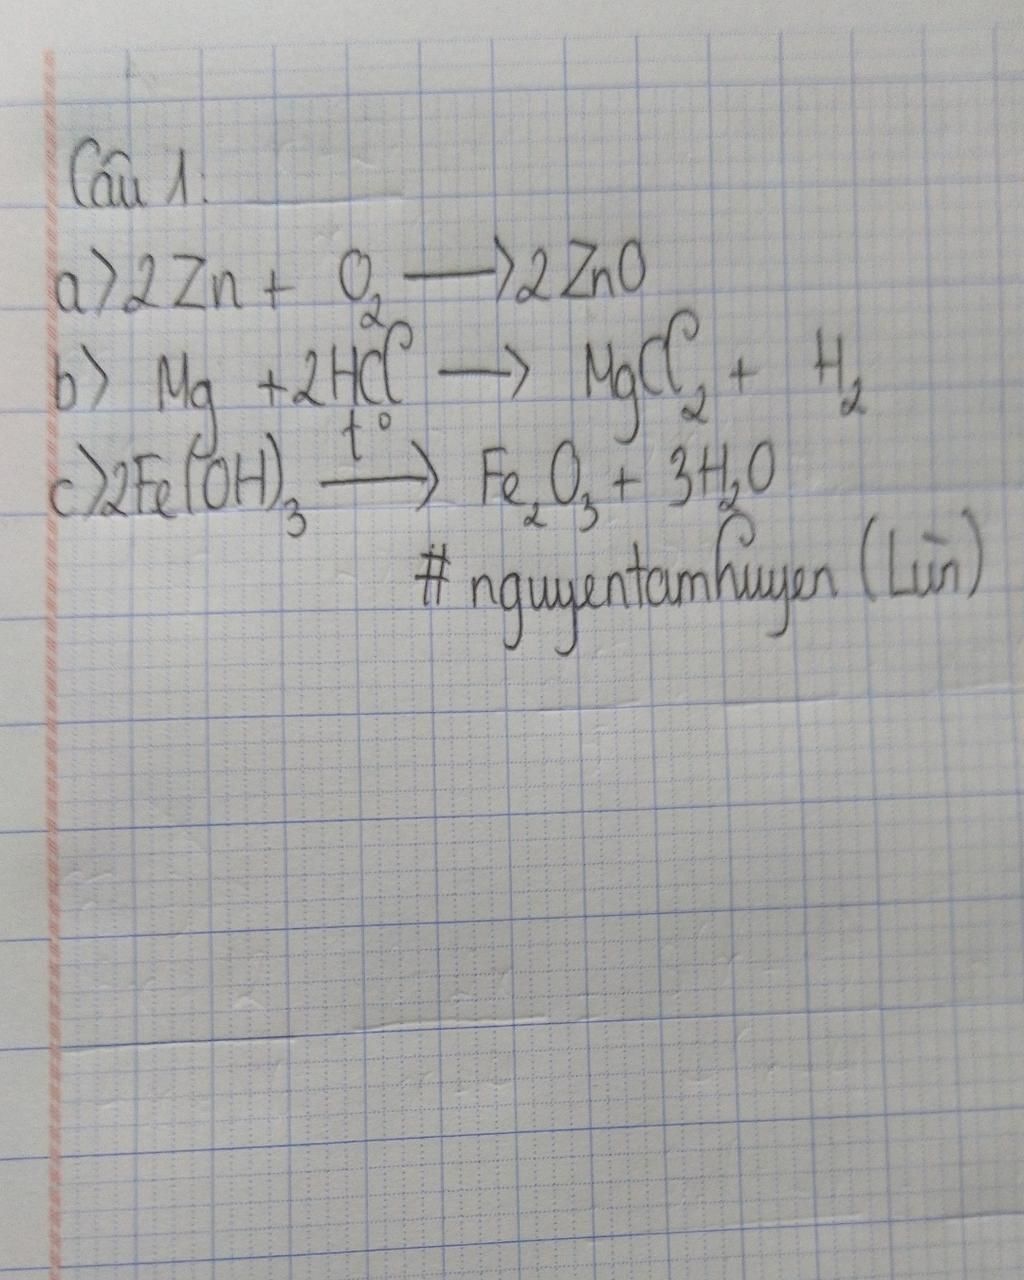 Câu 1:
a) 2Zn + O₂ ⟶ 2ZnO
b) Mg + 2HCl ⟶ MgCl₂ + H₂
t°
c) 2Fe(OH)₃ ⟶ Fe₂O₃ + 3H₂O
# nguyentamhuyen (Lùn)